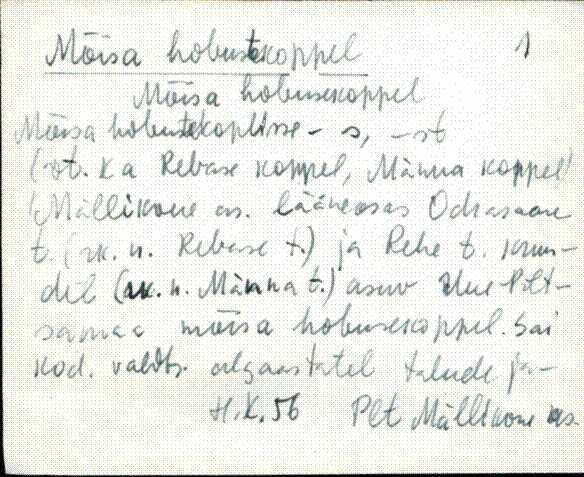 Mõisa hobustekoppel 1
Mõisa hobusekoppel
Mõisa hobustekoplisse - s, - st
(vt. ka Rebase koppel, Männa koppel)
(Mällikone as. lääneosas Odrasaare
t. (rk. n. Rebase t.) ja Rehe t. krun-
dil (rk. n. Männa t.) asuv Uue-Põlt-
samaa mõisa hobusekoppel. Sai
kod. valits. algaastatel talude ja-
H.K. 56 Plt Mällikone as.